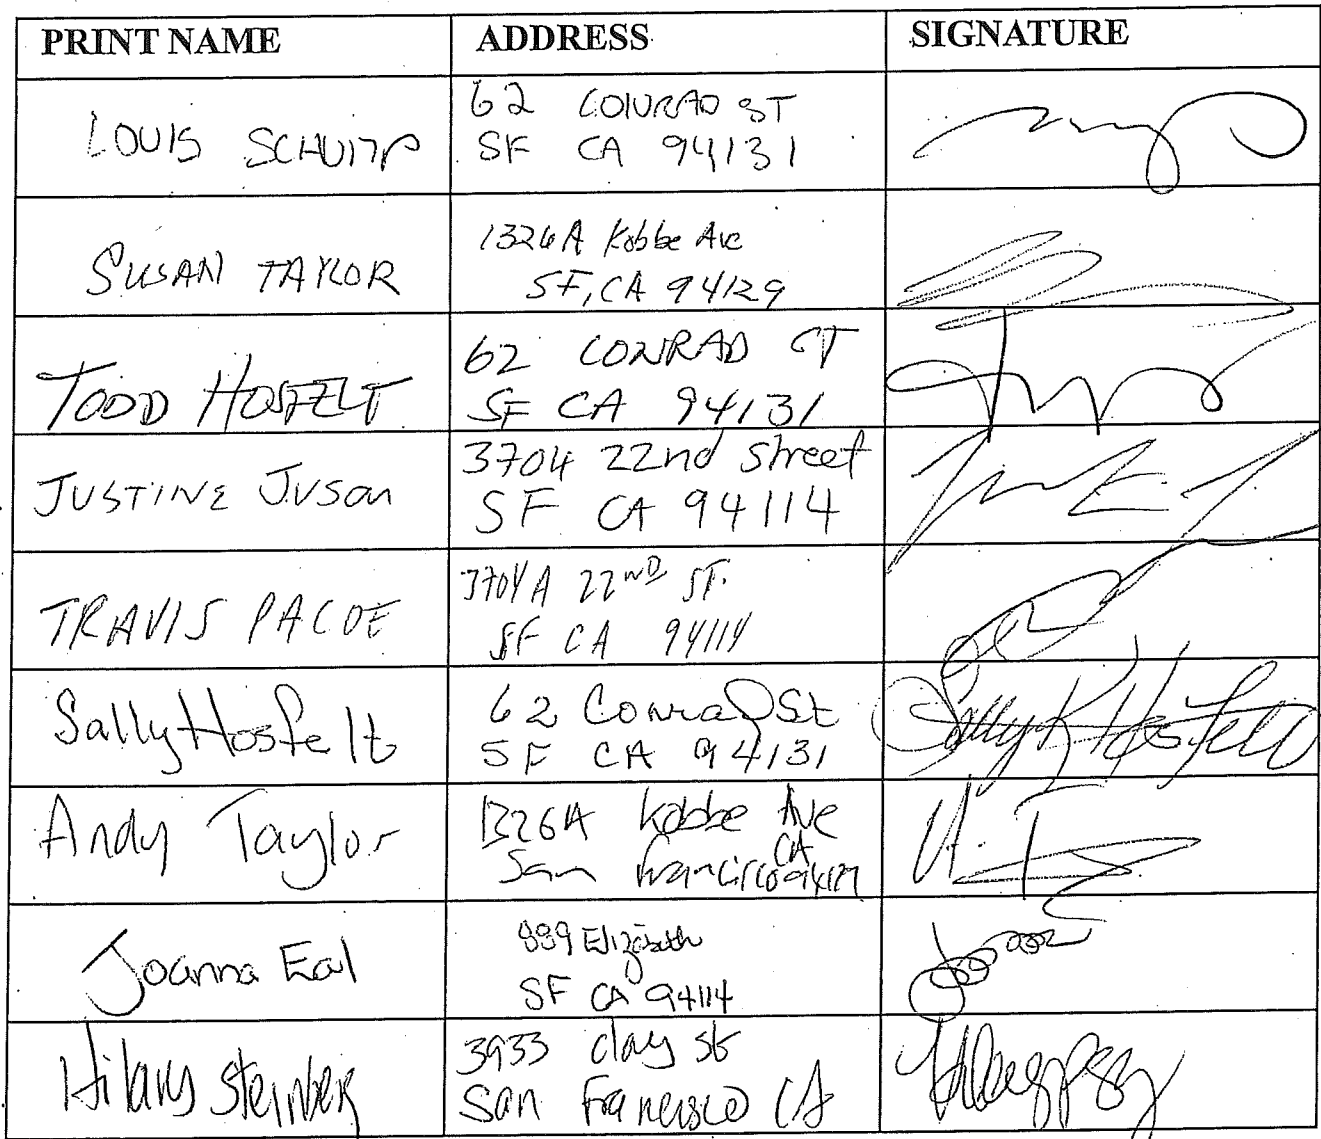 PRINT NAME ADDRESS SIGNATURE
LOUIS SCHUMP 62 CONRAD ST
SF CA 94131
SUSAN TAYLOR 1326A Kobbe Ave
SF, CA 94129
TODD HOSFELT 62 CONRAD ST
SF CA 94131
JUSTINE JUSON 3704 22nd street
SF CA 94114
TRAVIS PACOE 3704A 22ND ST.
SF CA 94114
Sally Hosfelt 62 Conrad St Sally K Hosfelt
SF CA 94131
Andy Taylor 1326A Kobbe Ave
San Francisco CA 94129
Joanna Eal 889 Elizabeth
SF CA 94114
Hilary 3933 clay st
San Francisco CA